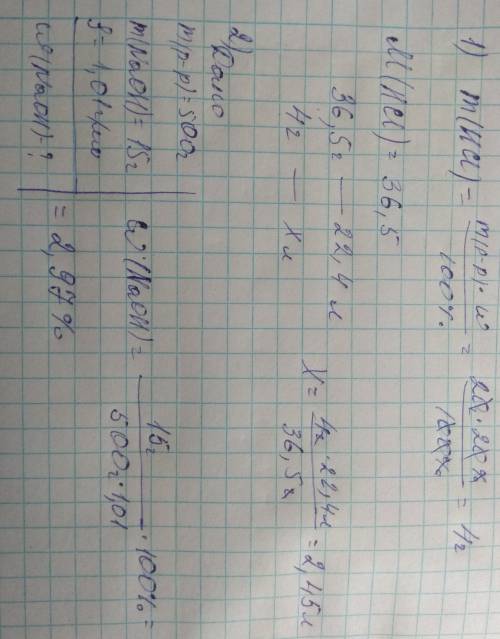 1) m(HCl) = m(р-р)·ω / 100% = 20·20% / 100% = 4г
M(HCl) = 36,5
36,5г — 22,4 л
4г — X л
X = 4г·22,4л / 36,5г = 2,45л
2) Дано
m(р-р) = 500г
m(NaOH) = 15г
ρ = 1,01 г/мл
ω(NaOH) - ?
ω(NaOH) = 15г / 500г·1,01 · 100% =
= 2,97%